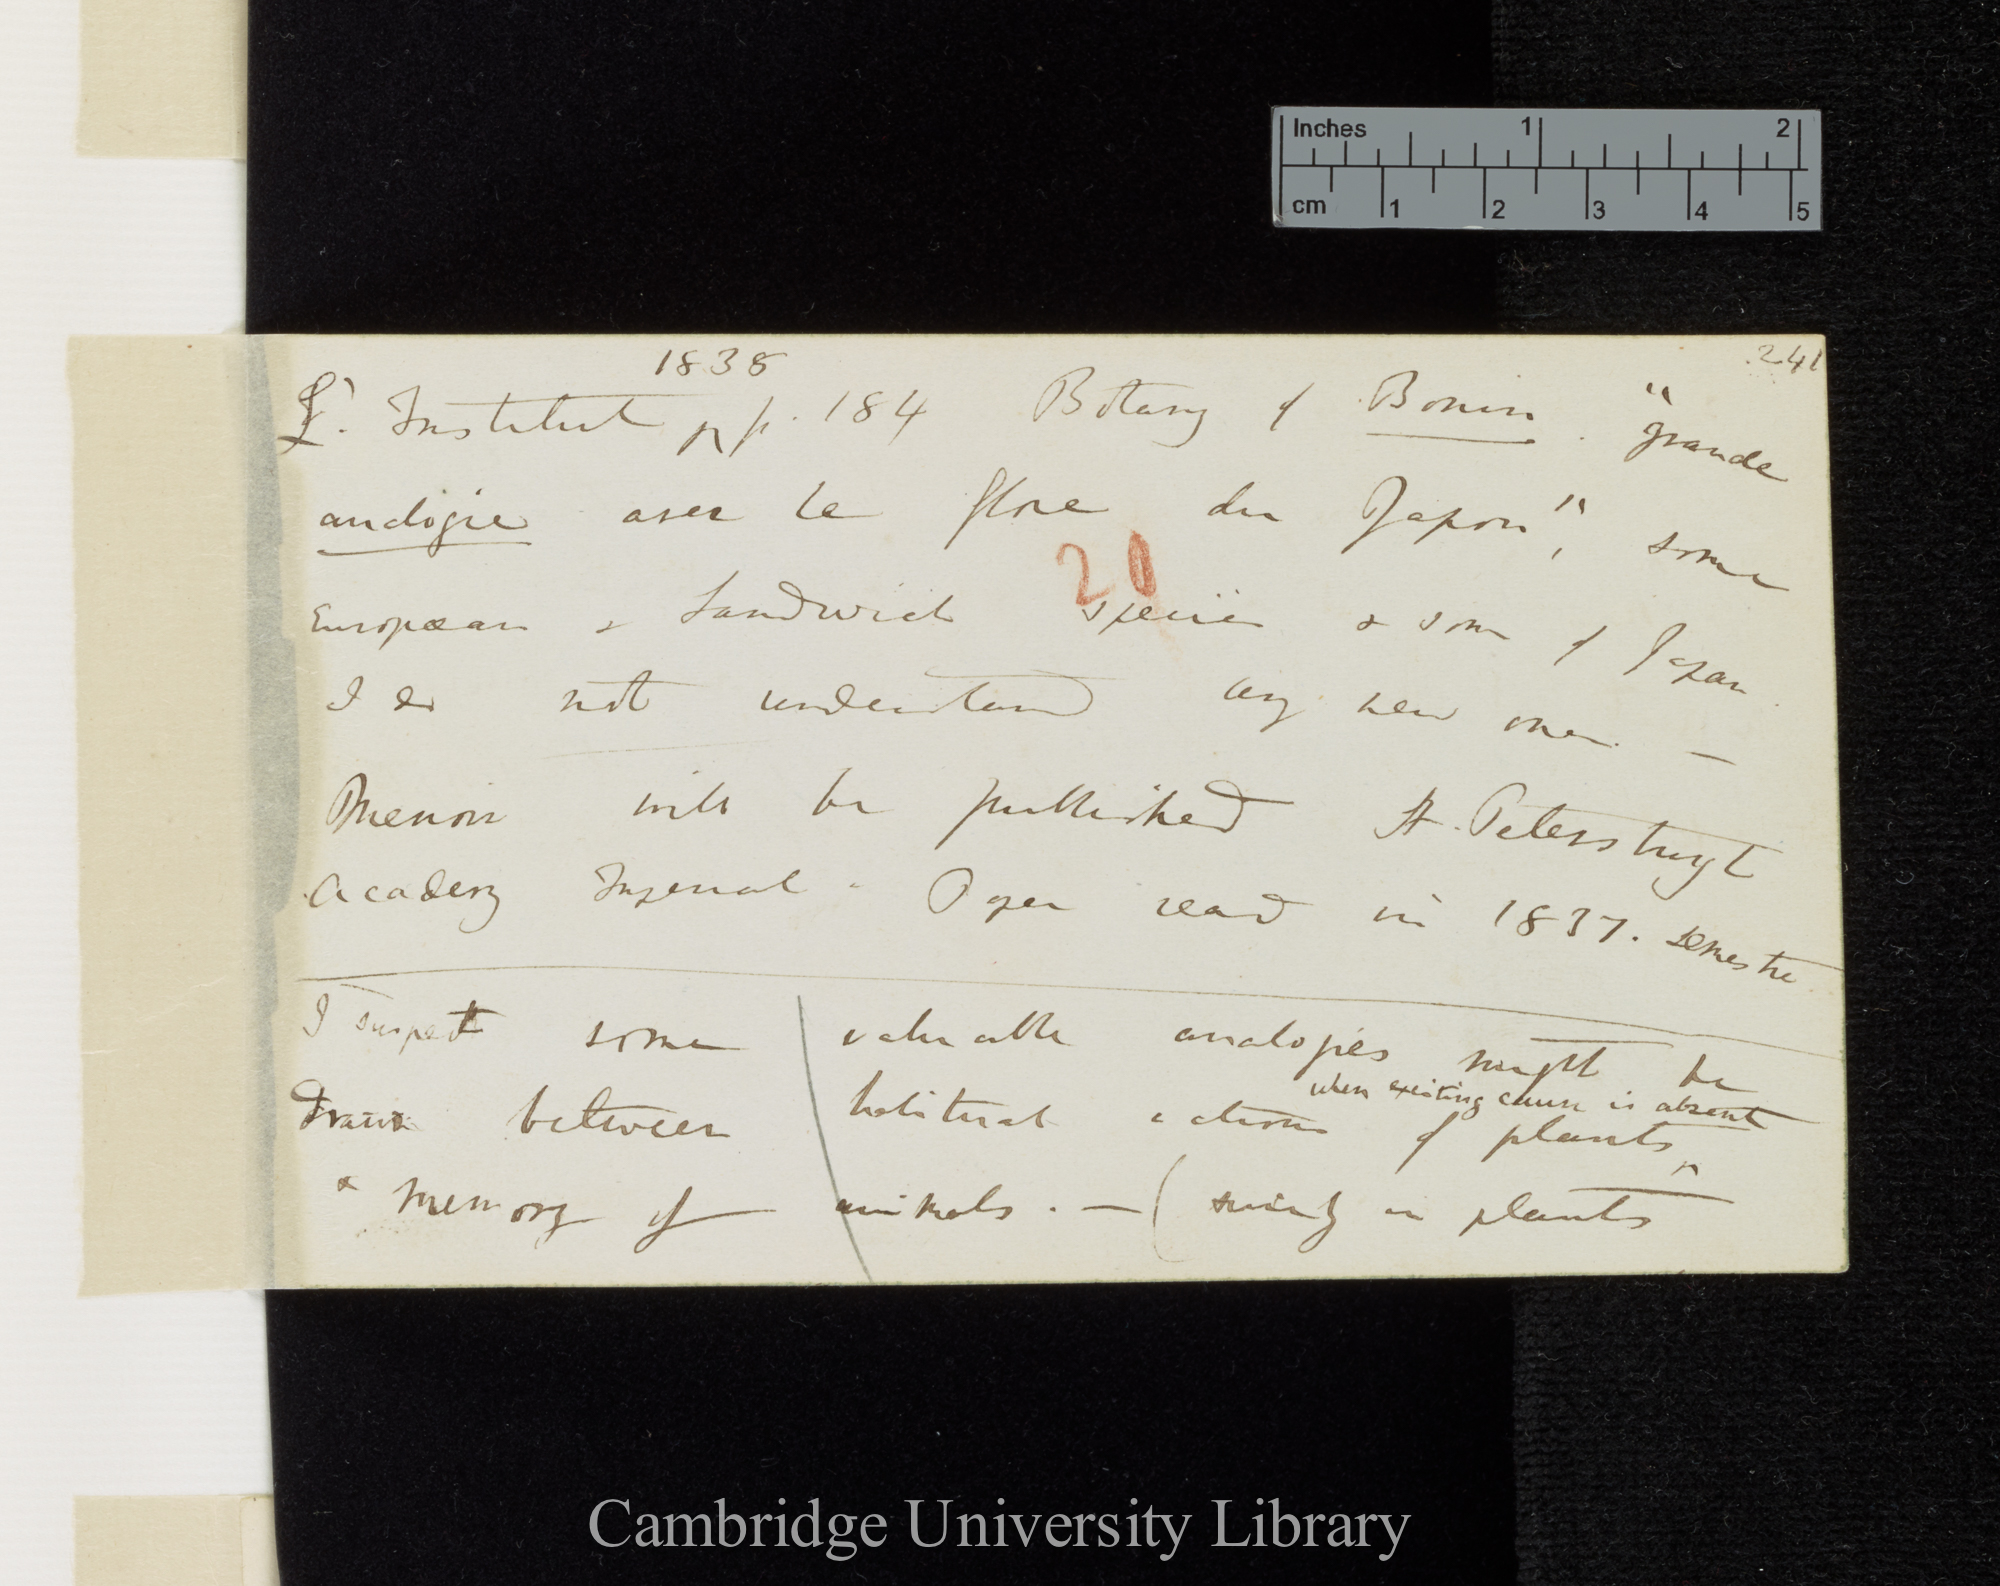 Inches 1 2
cm 1 2 3 4 5
241
1838
L'. Institut pp. 184 Botany of Bonin. "grande
analogie avec le flore du Japon", some
European & Sandwich species & some of Japan
20
I do not understand any new ones. —
Memoir will be published St. Petersburgh
Academy Imperial. Paper read in 1837. semestre
I suspect some valuable analogies might be
drawn between habitual actions of plants
when exciting cause is absent
& memory of animals. — ( in plants
Cambridge University Library